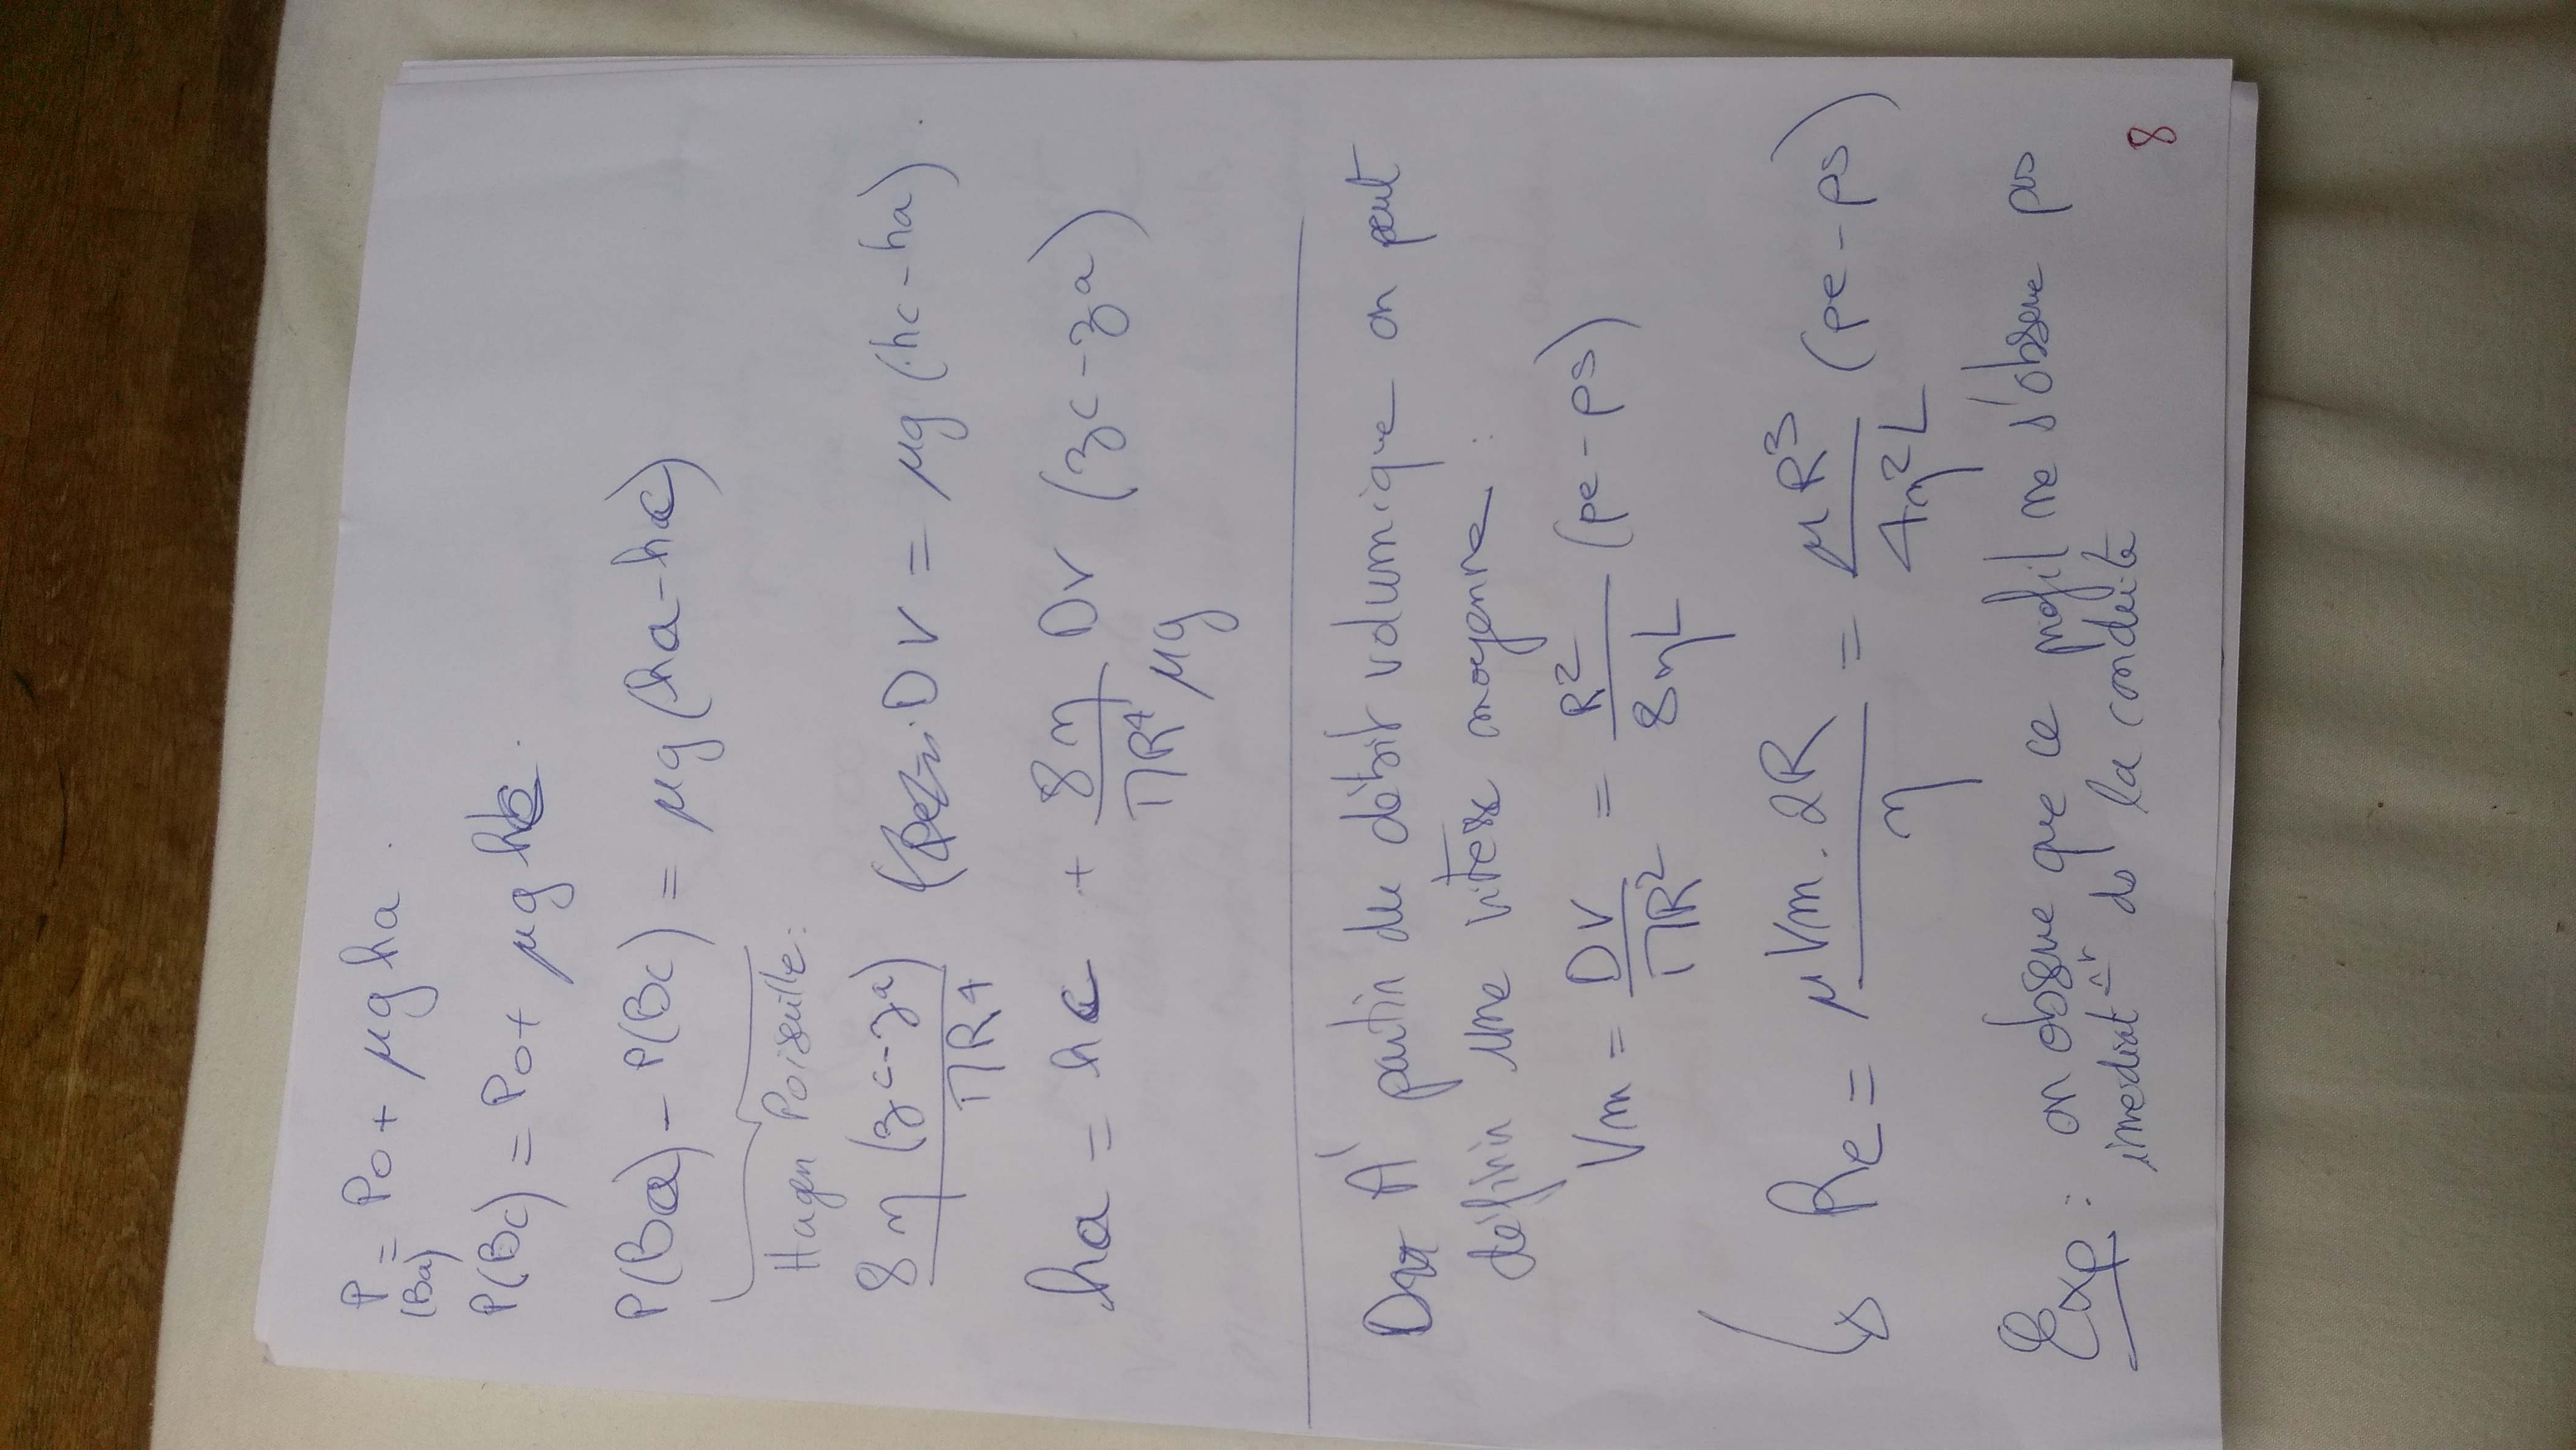 P(Ba) = Po + μg ha.
P(Bc) = Po + μg hc.
P(Ba) - P(Bc) = μg (ha - hc)
Hagen Poiseuille:
8η (zc-za) / πR⁴ DV = μg (hc - ha).
ha = hc + 8η / πR⁴ μg DV (zc - za)
À partir du débit volumique on peut
définir une vitesse moyenne:
Vm = DV / πR² = R² / 8ηL (pe - ps)
↳ Re = μVm. 2R / η = μR³ / 4η²L (pe - ps)
Exp: on observe que ce profil ne s'observe pas
imediat^t ds la conduite
8